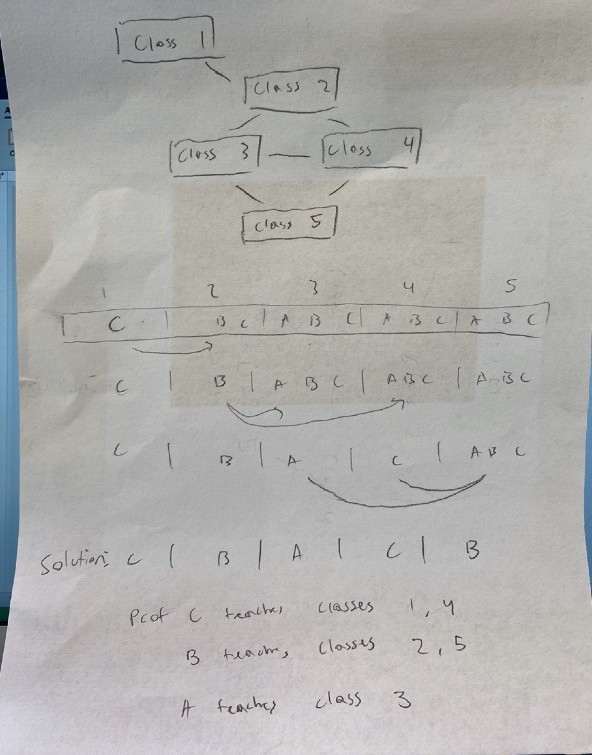 Class 1
Class 2
Class 3 Class 4
Class 5
1 2 3 4 5
C | B C | A B C | A B C | A B C
C | B | A B C | A B C | A B C
C | B | A | C | A B C
Solution: C | B | A | C | B
Prof C teaches classes 1, 4
B teaches classes 2, 5
A teaches class 3